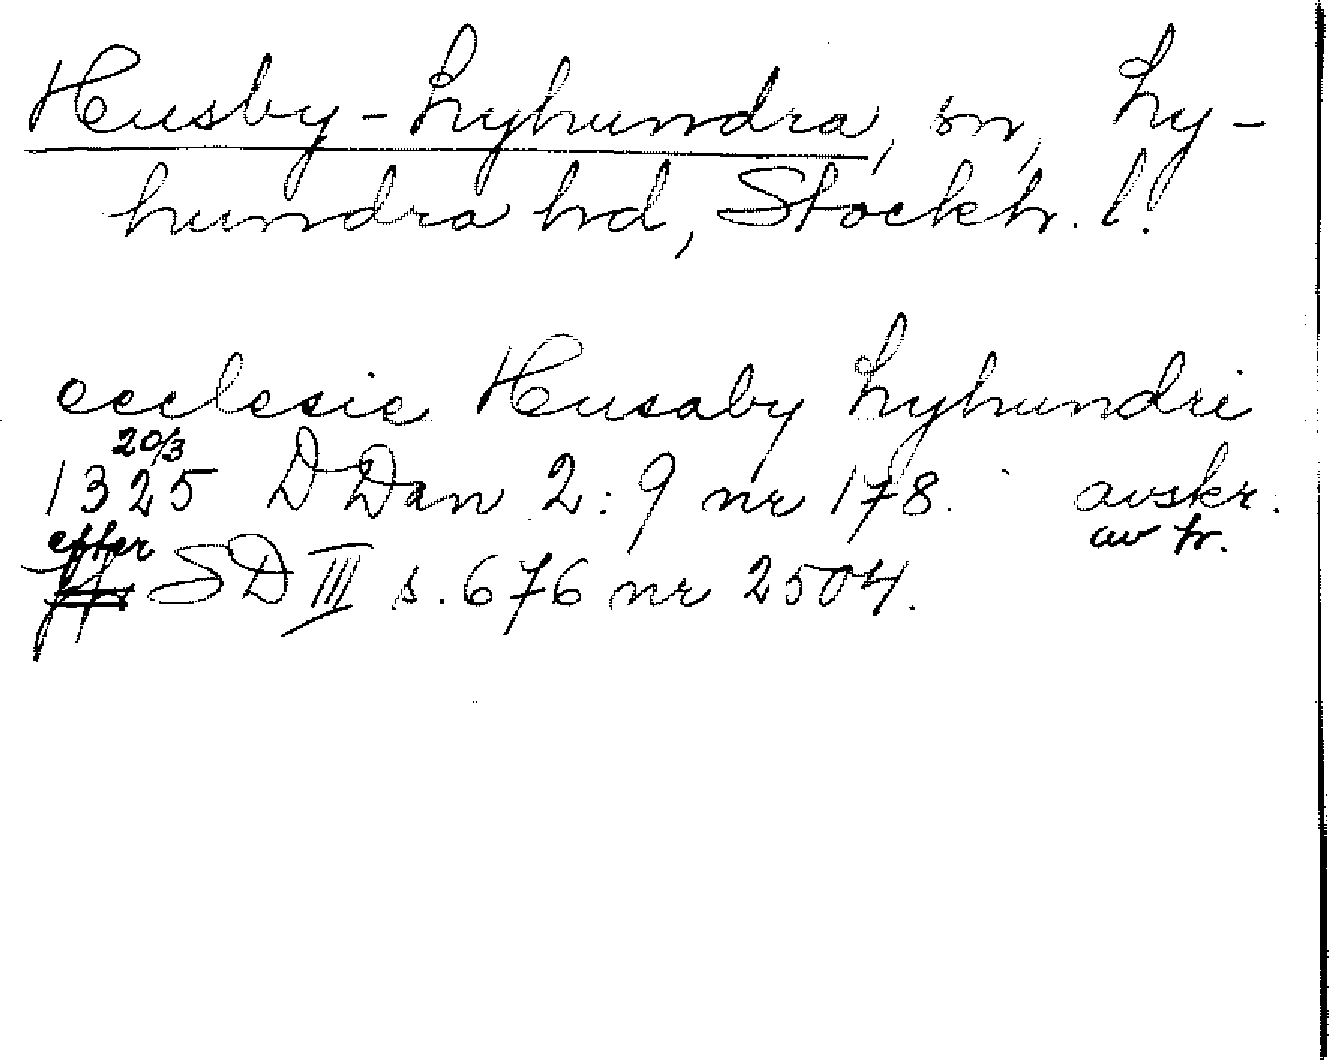 Husby-Lyhundra, sn, Ly-
hundra hd, Stockh. l.
ecclesie Husaby Lyhundri
20/3
1325 DDan 2:9 nr 178. avskr.
efter av tr.
SD III s. 676 nr 2504.